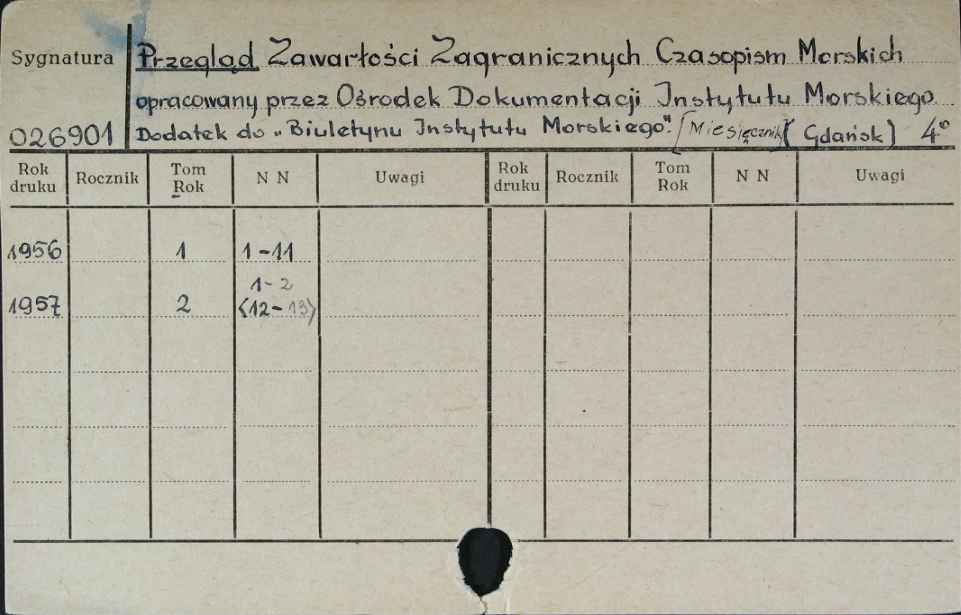 Sygnatura Przegląd Zawartości Zagranicznych Czasopism Morskich
opracowany przez Ośrodek Dokumentacji Instytutu Morskiego.
026901 Dodatek do „Biuletynu Instytutu Morskiego". [Miesięcznik] [Gdańsk] 4°
Rok druku Rocznik Tom Rok N N Uwagi Rok druku Rocznik Tom Rok N N Uwagi
1956 1 1-11
1-2
1957 2 <12-13>